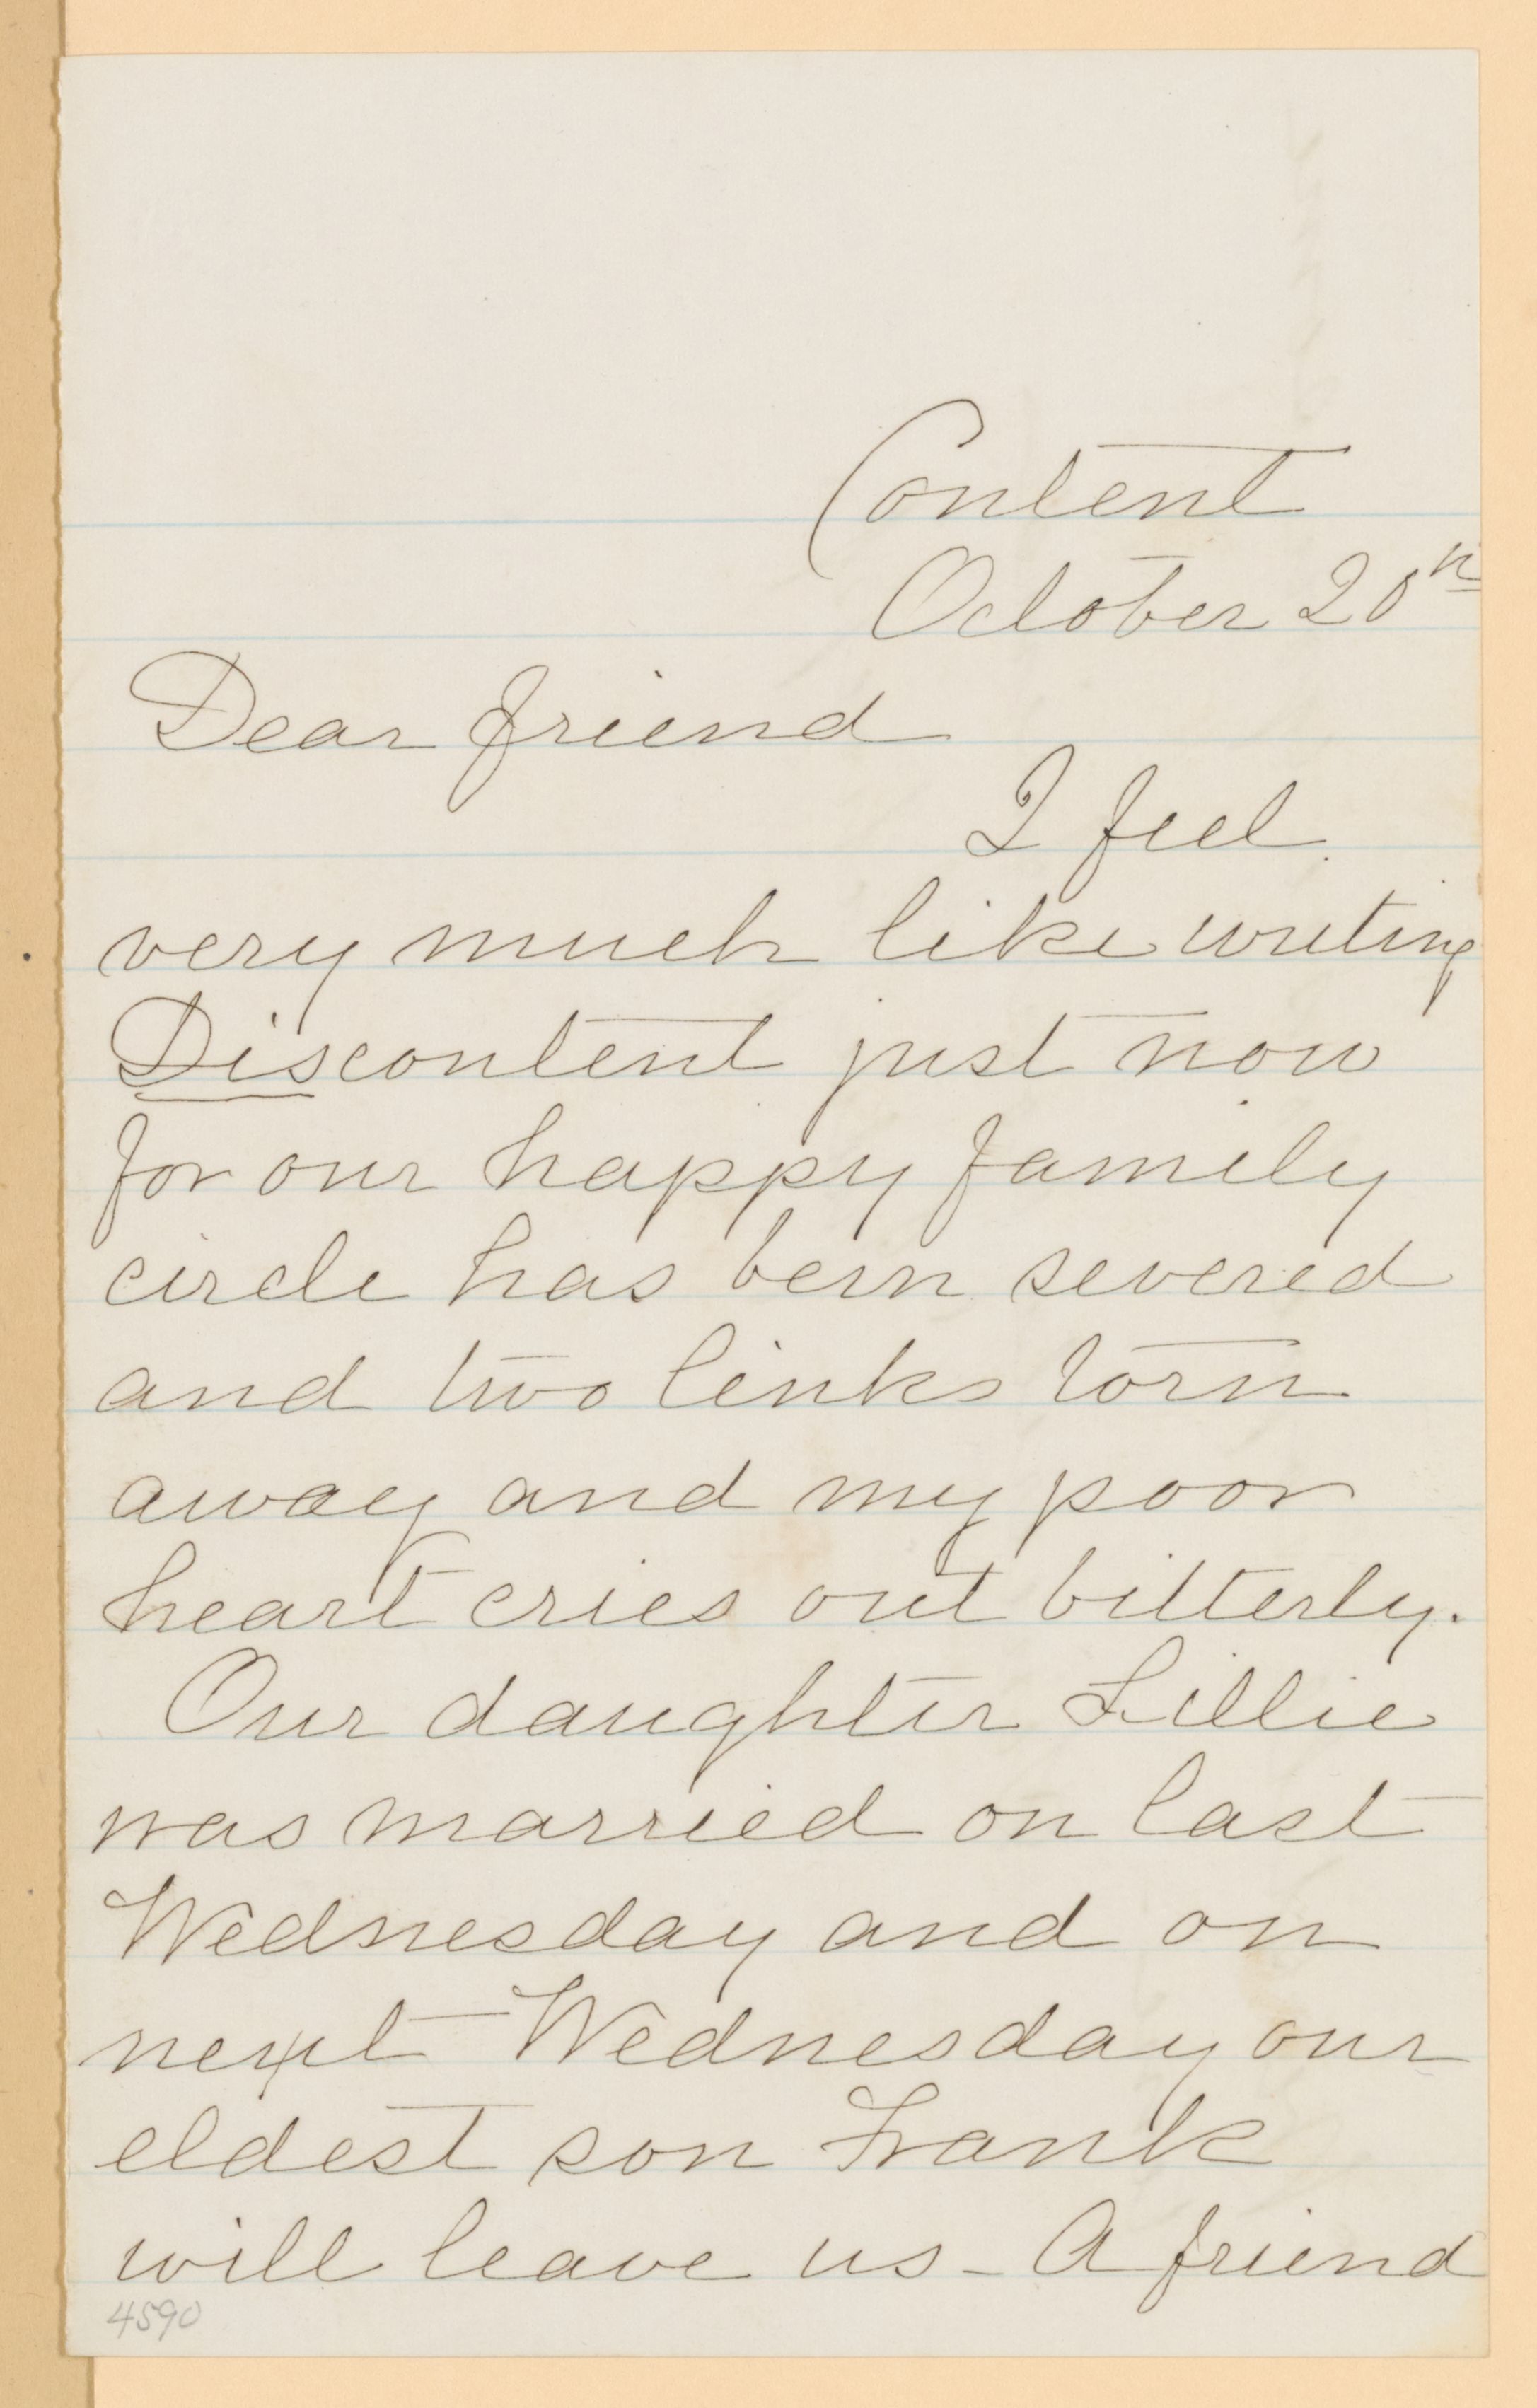 Content
October 20th
Dear friend
I feel
very much like writing
Discontent just now
for our happy family
circle has been severed
and two links torn
away and my poor
heart cries out bitterly.
Our daughter Lillie
was married on last
Wednesday and on
next Wednesday our
eldest son Frank
will leave us - A friend
4590